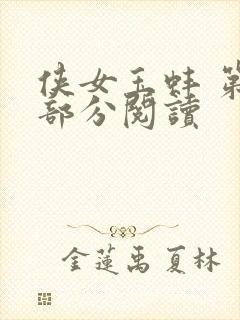 侠女玉蚌 第
部分閱讀
金蓮禹夏林